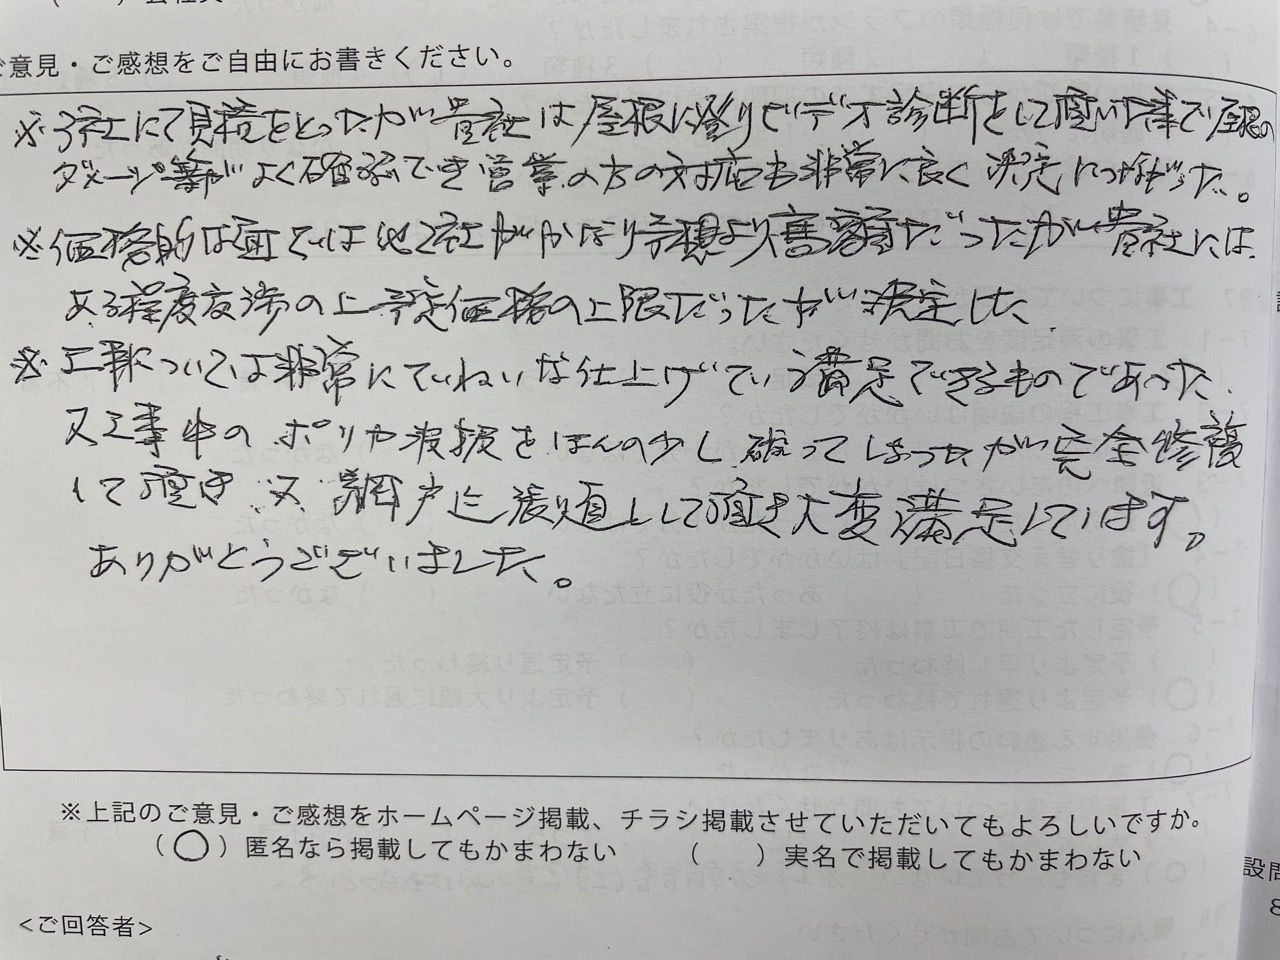 ご意見・ご感想をご自由にお書きください。
※3社にて見積をとったが貴社は屋根に登りビデオ診断をして頂いた事で屋根の
ダメージ等がよく確認でき営業の方の対応も非常に良く決定につながった。
※価格的な面では他2社がかなり予想より高額だったが貴社には
ある程度交渉の上予定価格の上限だったが決定した
※工事については非常にていねいな仕上げでいう満足できるものであった
又工事中のポリカ波板をほんの少し破ってしまったが完全修復
して頂き又網戸に張り直しして頂き大変満足しています。
ありがとうございました。
※上記のご意見・ご感想をホームページ掲載、チラシ掲載させていただいてもよろしいですか。
（○）匿名なら掲載してもかまわない　（　）実名で掲載してもかまわない
設問
8
<ご回答者>